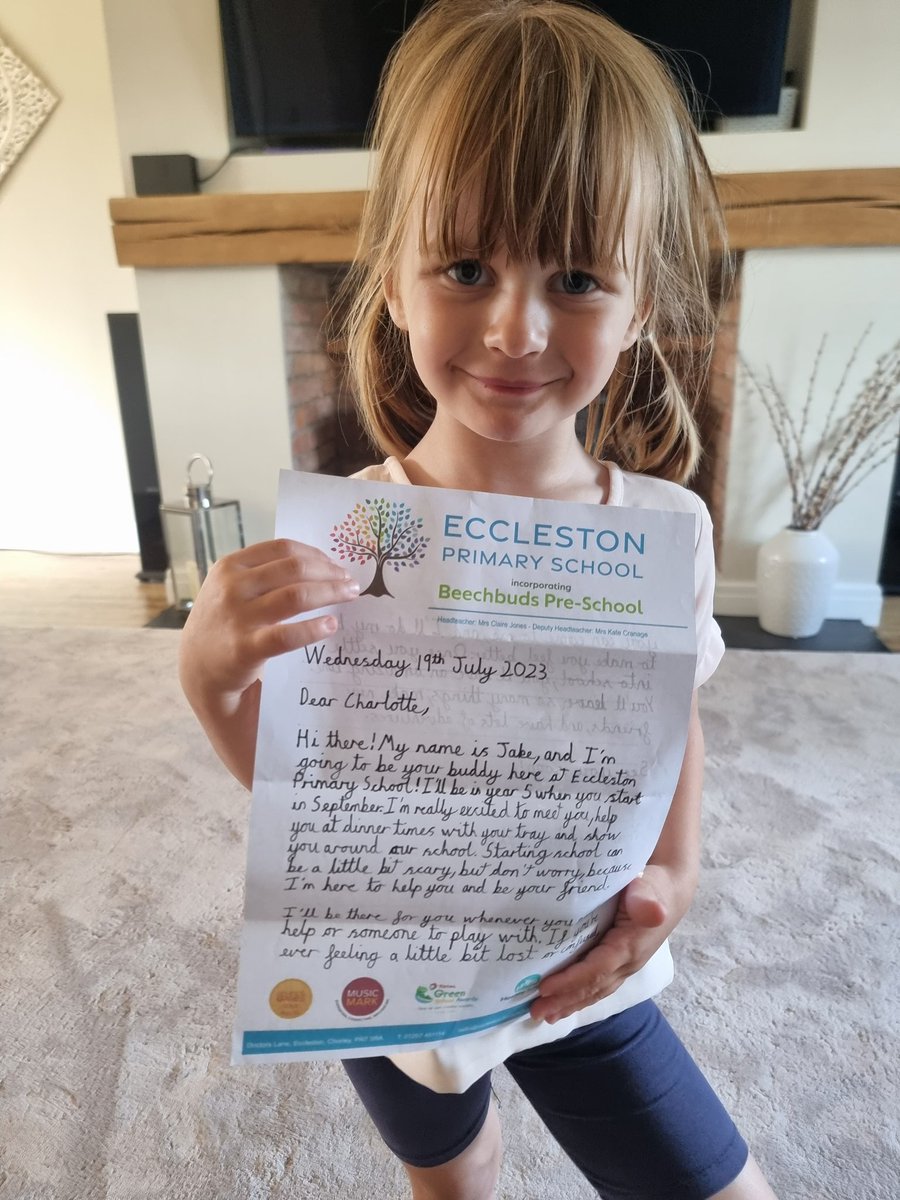 ECCLESTON
PRIMARY SCHOOL
incorporating
Beechbuds Pre-School
Headteacher: Mrs Claire Jones - Deputy Headteacher: Mrs Kate Cranage
Wednesday 19th July 2023
Dear Charlotte,
Hi there! My name is Jake, and I'm
going to be your buddy here at Eccleston
Primary School! I'll be in year 5 when you start
in September. I'm really excited to meet you, help
you at dinner times with your tray and show
you around our school. Starting school can
be a little bit scary, but don't worry, because
I'm here to help you and be your friend.
I'll be there for you whenever you
help or someone to play with. If you're
ever feeling a little bit lost or
MUSIC
MARK
Green
School Awards
Doctors Lane, Eccleston, Chorley, PR7